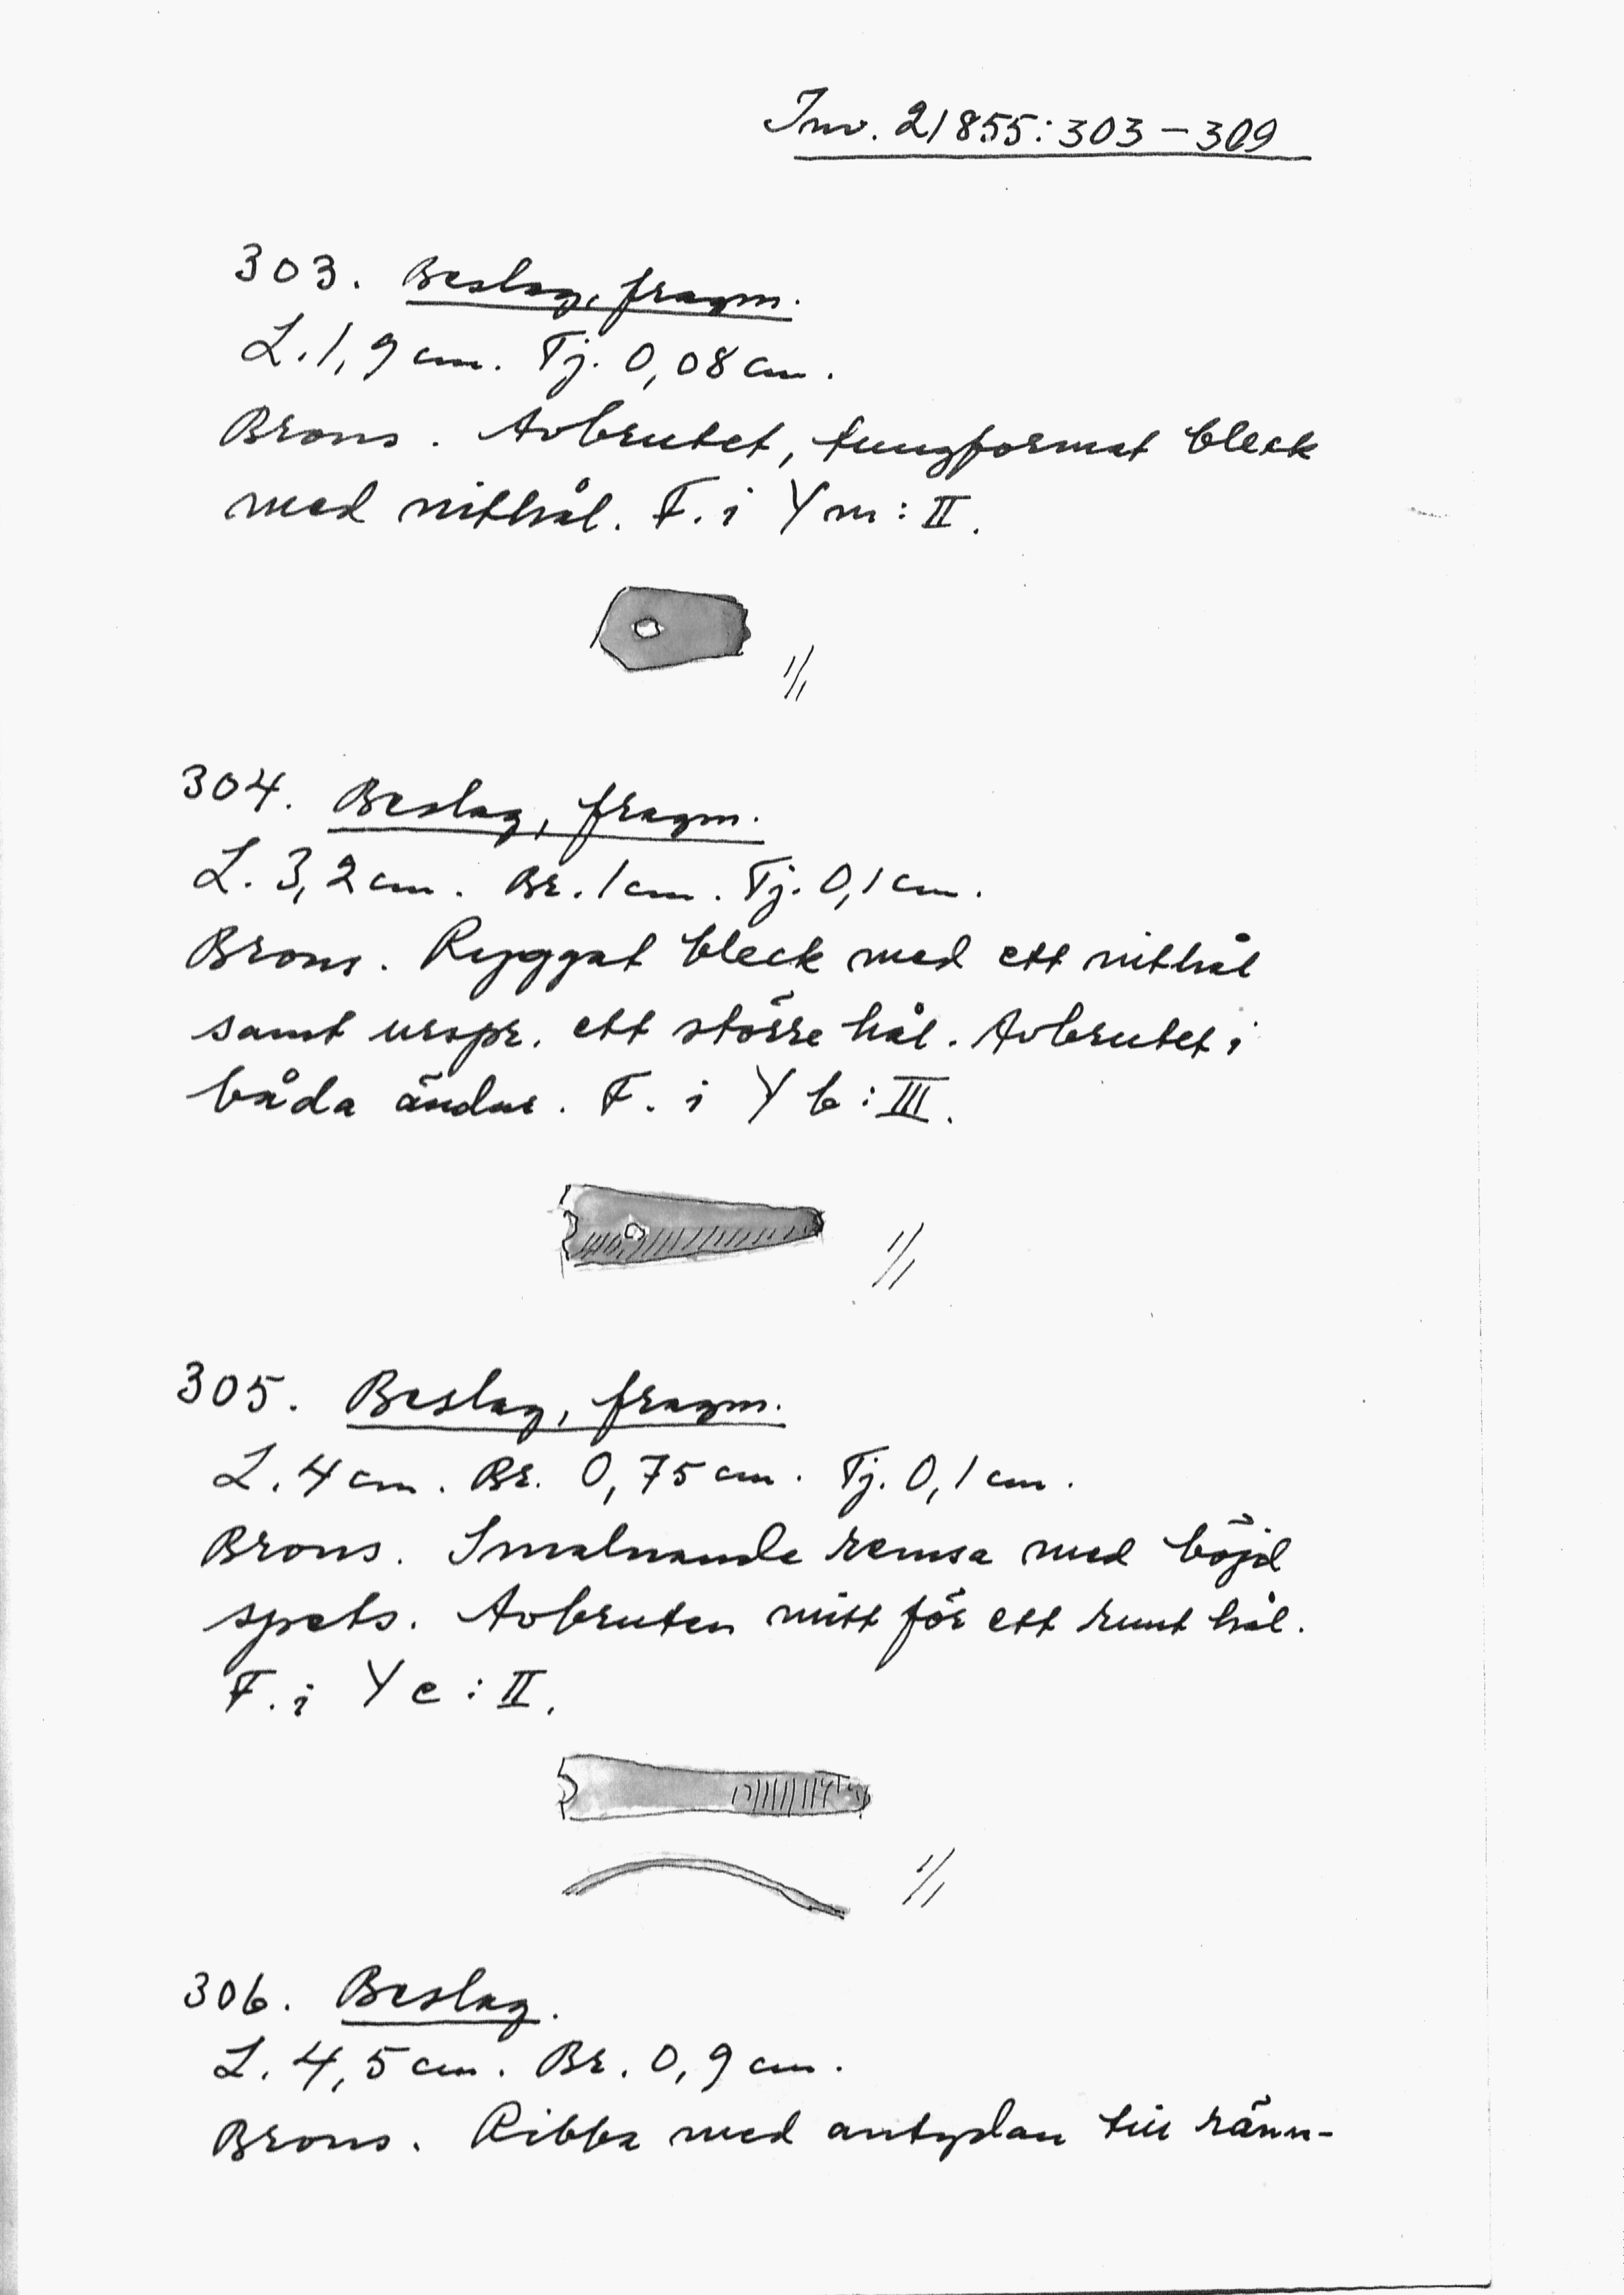 Inv. 21855:303–309
303. Beslag, fragm.
L. 1,9 cm. Tj. 0,08 cm.
Brons. Avbrutet, tungformat bleck
med nithål. F. i Y m : II.
1/1
304. Beslag, fragm.
L. 3,2 cm. Br. 1 cm. Tj. 0,1 cm.
Brons. Ryggat bleck med ett nithål
samt urspr. ett större hål. Avbrutet i
båda ändar. F. i Y b : III.
1/1
305. Beslag, fragm.
L. 4 cm. Br. 0,75 cm. Tj. 0,1 cm.
Brons. Smalnande remsa med böjd
spets. Avbruten mitt för ett runt hål.
F. i Y c : II.
1/1
306. Beslag.
L. 4,5 cm. Br. 0,9 cm.
Brons. Ribba med antydan till ränn-